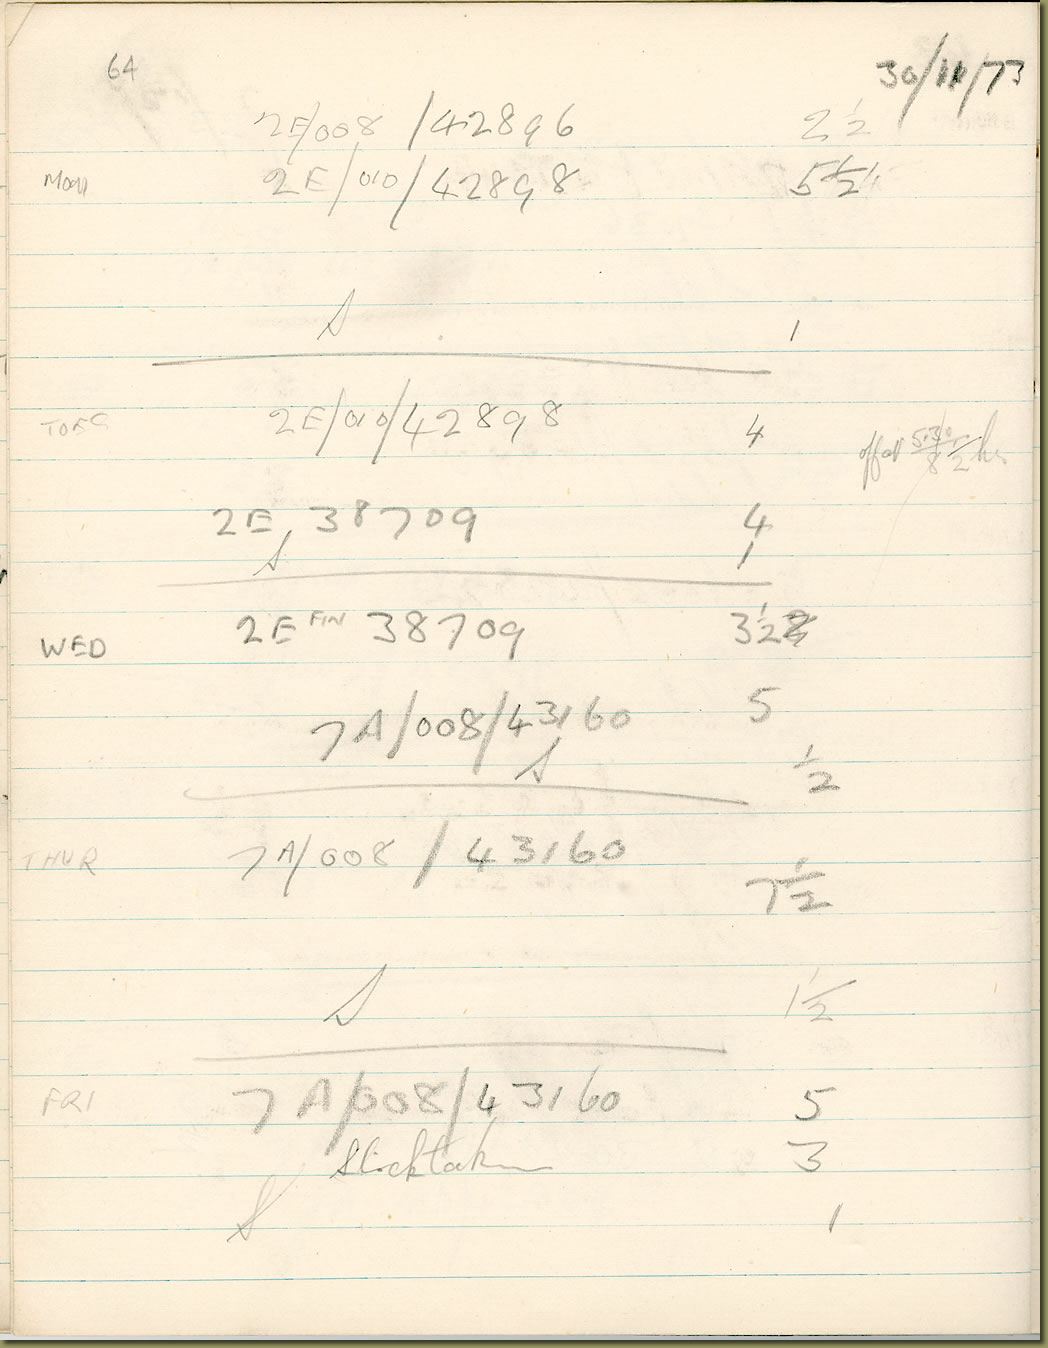 64
30/11/73
2E/008/42896 2½
MON 2E/010/42898 5½
S 1
TUES 2E/010/42898 4
off at 5.30
8½ hrs
2E 38709 4
S 1
WED 2E FIN 38709 3½
7A/008/43160 5
S ½
THUR 7A/008/43160 7½
S 1½
FRI 7A/008/43160 5
Stocktaking 3
S 1